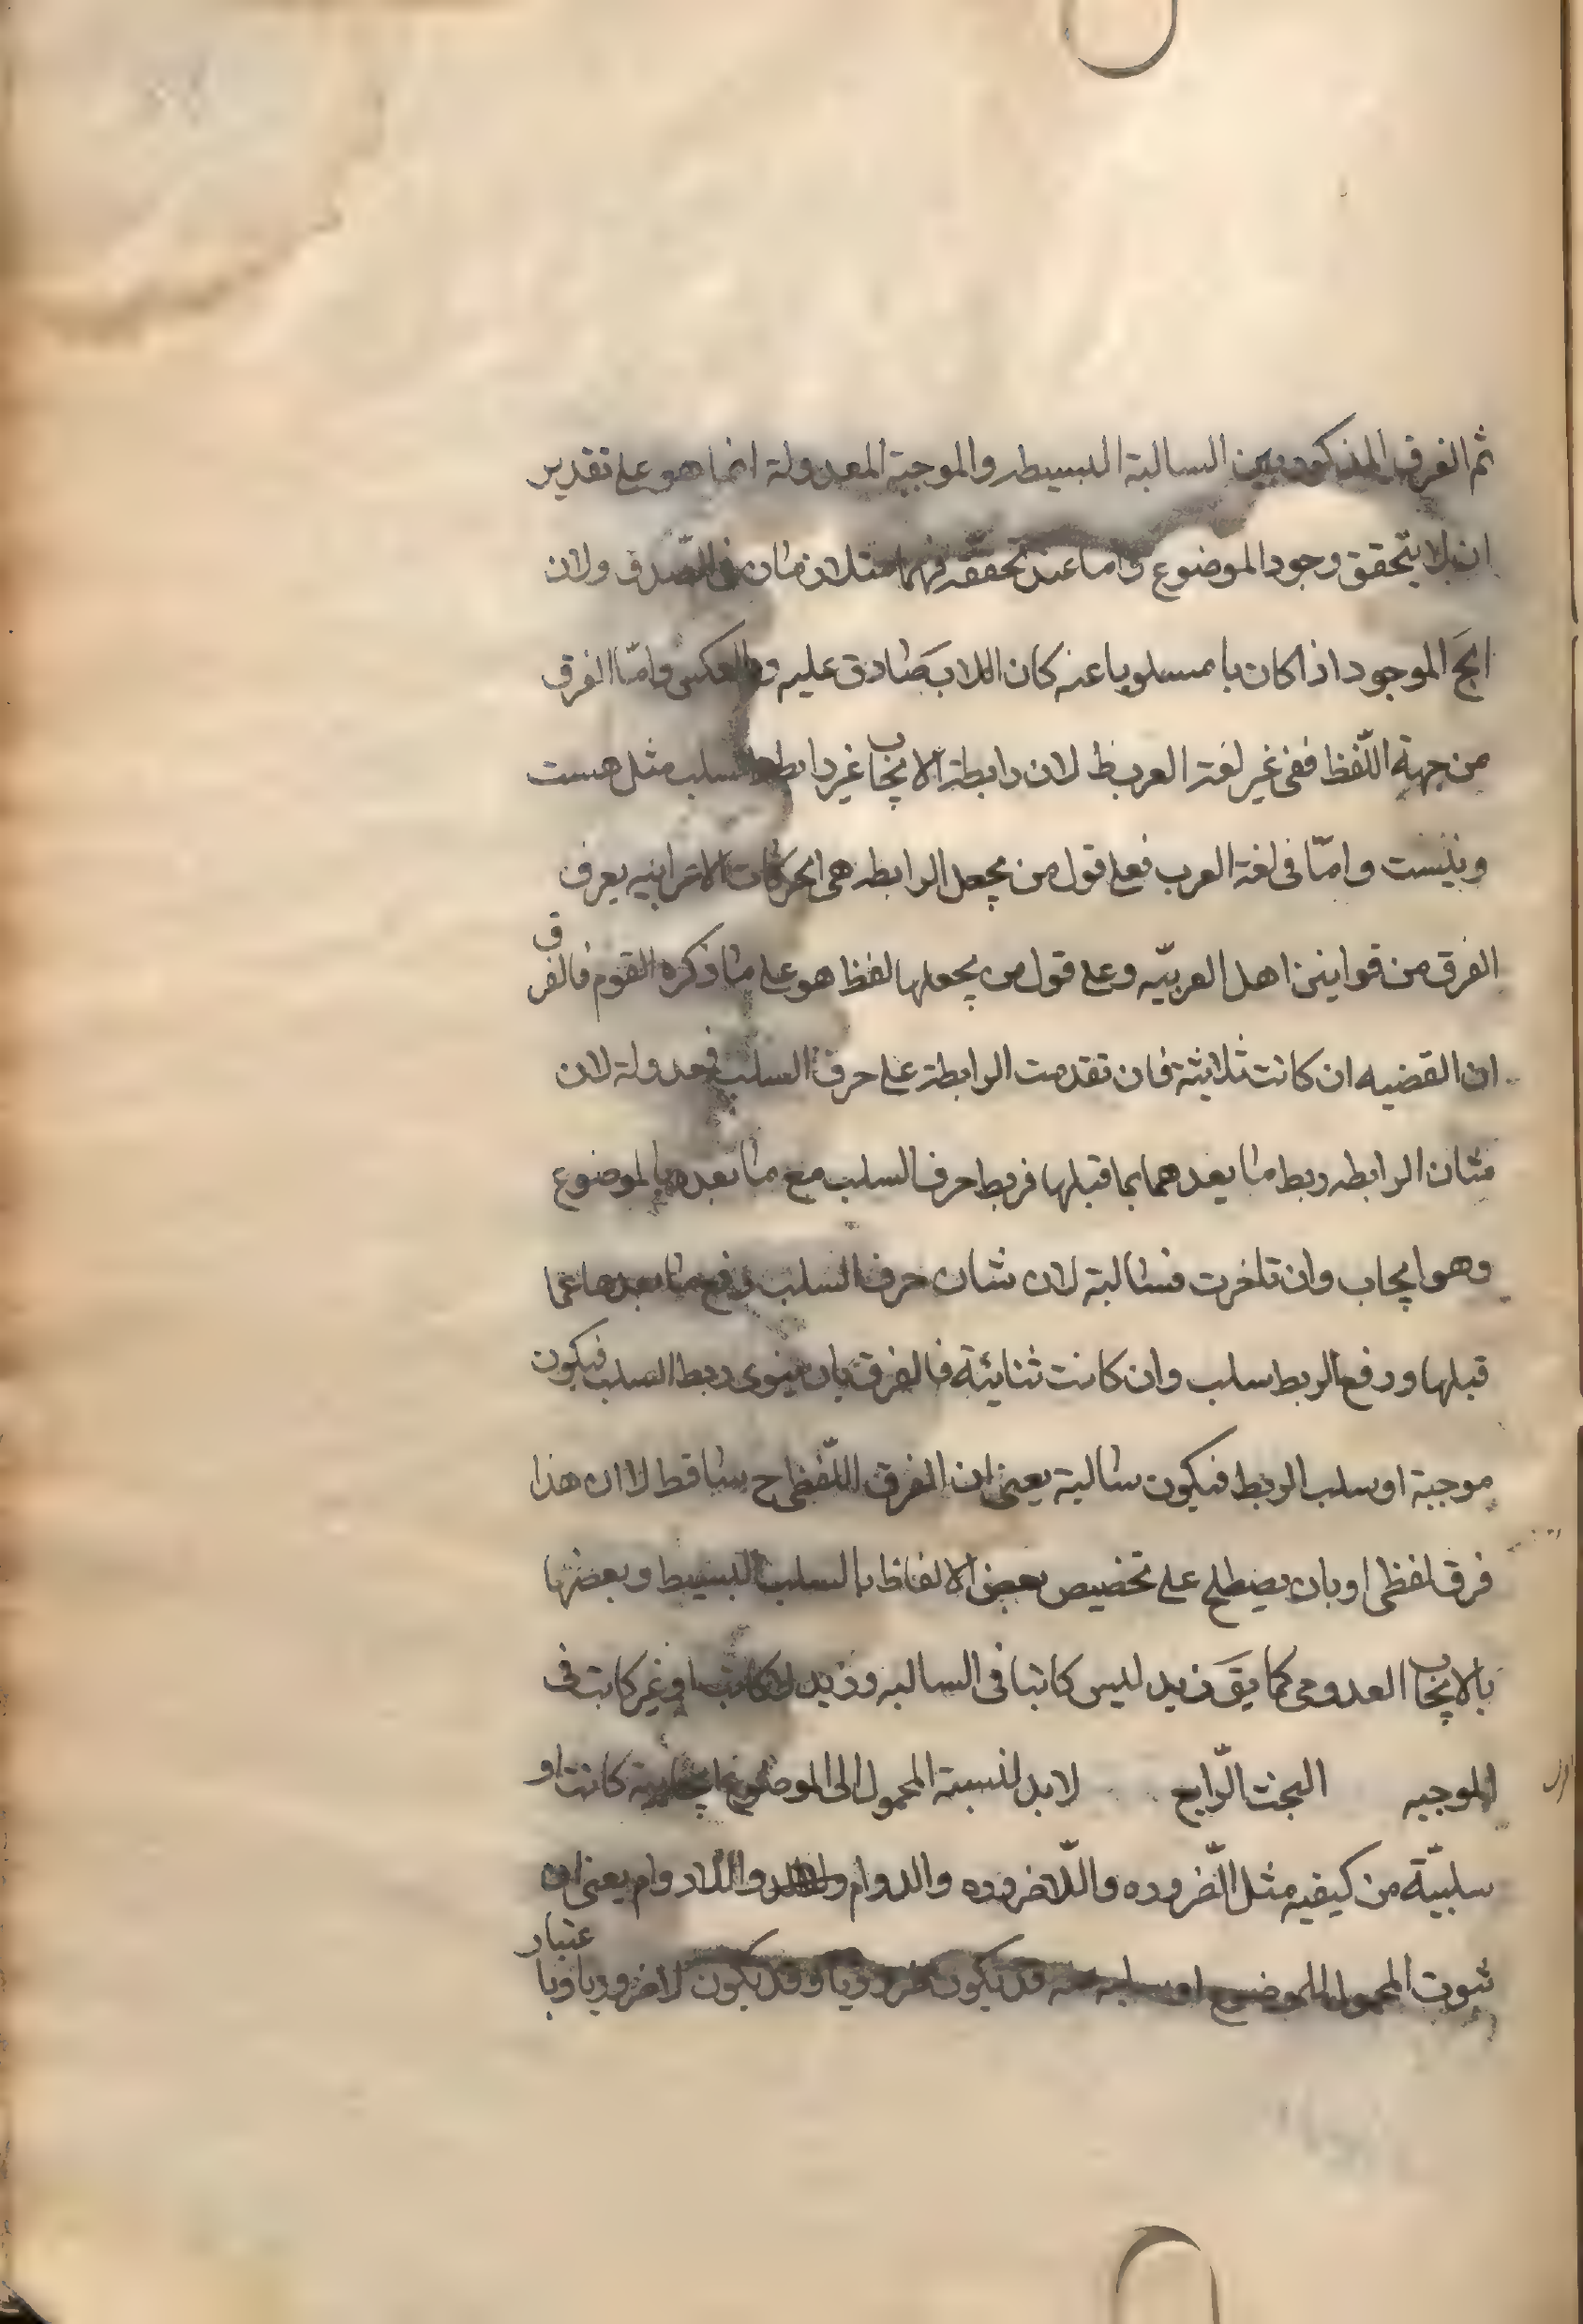 ثم الفرق المذكور بين السالبة البسيطه والموجبة المعدولة انما هو على تقدير
ان لا يتحقق وجود الموضوع واما عند تحققه فهما متلازمان فى الصدق ولان
الج الموجود اذا كان با مسلوبا عنه كان اللاب صادق عليه وبالعكس وامّا الفرق
من جهة اللّفظ ففى غير لغة العرب ظ لان رابطة الايجاب غير رابطة السلب مثل هست
ونيست وامّا فى لغة العرب فعلى قول من يجعل الرابطه هى الحركات الاعرابيه يعرف
الفرق من قوانين اهل العربيّه وعلى قول من يجعلها لفظ هو على ما ذكره القوم فالفرق
ان القضيه ان كانت ثلاثية فان تقدمت الرابطة على حرف السلب فمعدولة لان
شان الرابطه ربط ما بعدها بما قبلها فربط حرف السلب مع ما بعدها بالموضوع
وهو ايجاب وان تاخرت فسالبة لان شان حرف السلب رفع ما بعدها عما
قبلها ورفع الربط سلب وان كانت ثنائية فالفرق بان ينوى ربط السلب فيكون
موجبة او سلب الربط فيكون سالبة يعنى ان الفرق اللّفظى ح ساقط لا ان هذا
فرق لفظى او بان يصطلح على تخصيص بعض الالفاظ بالسلب البسيط وبعضها
بالايجاب العدولى كما يقَ زيد ليس كاتبا فى السالبه وزيد لا كاتب او غير كاتب فى
الموجبه البحث الرّابع لا بد لنسبة المحمول الى الموضوع ايجابية كانت او
سلبيّة من كيفيه مثل الضّروره واللّاضروره والدوام واللّادوام يعنى ان
ثبوت المحمول للموضوع او سلبه عنه قد يكون ضروريا وقد يكون لاضروريا وباعتبار